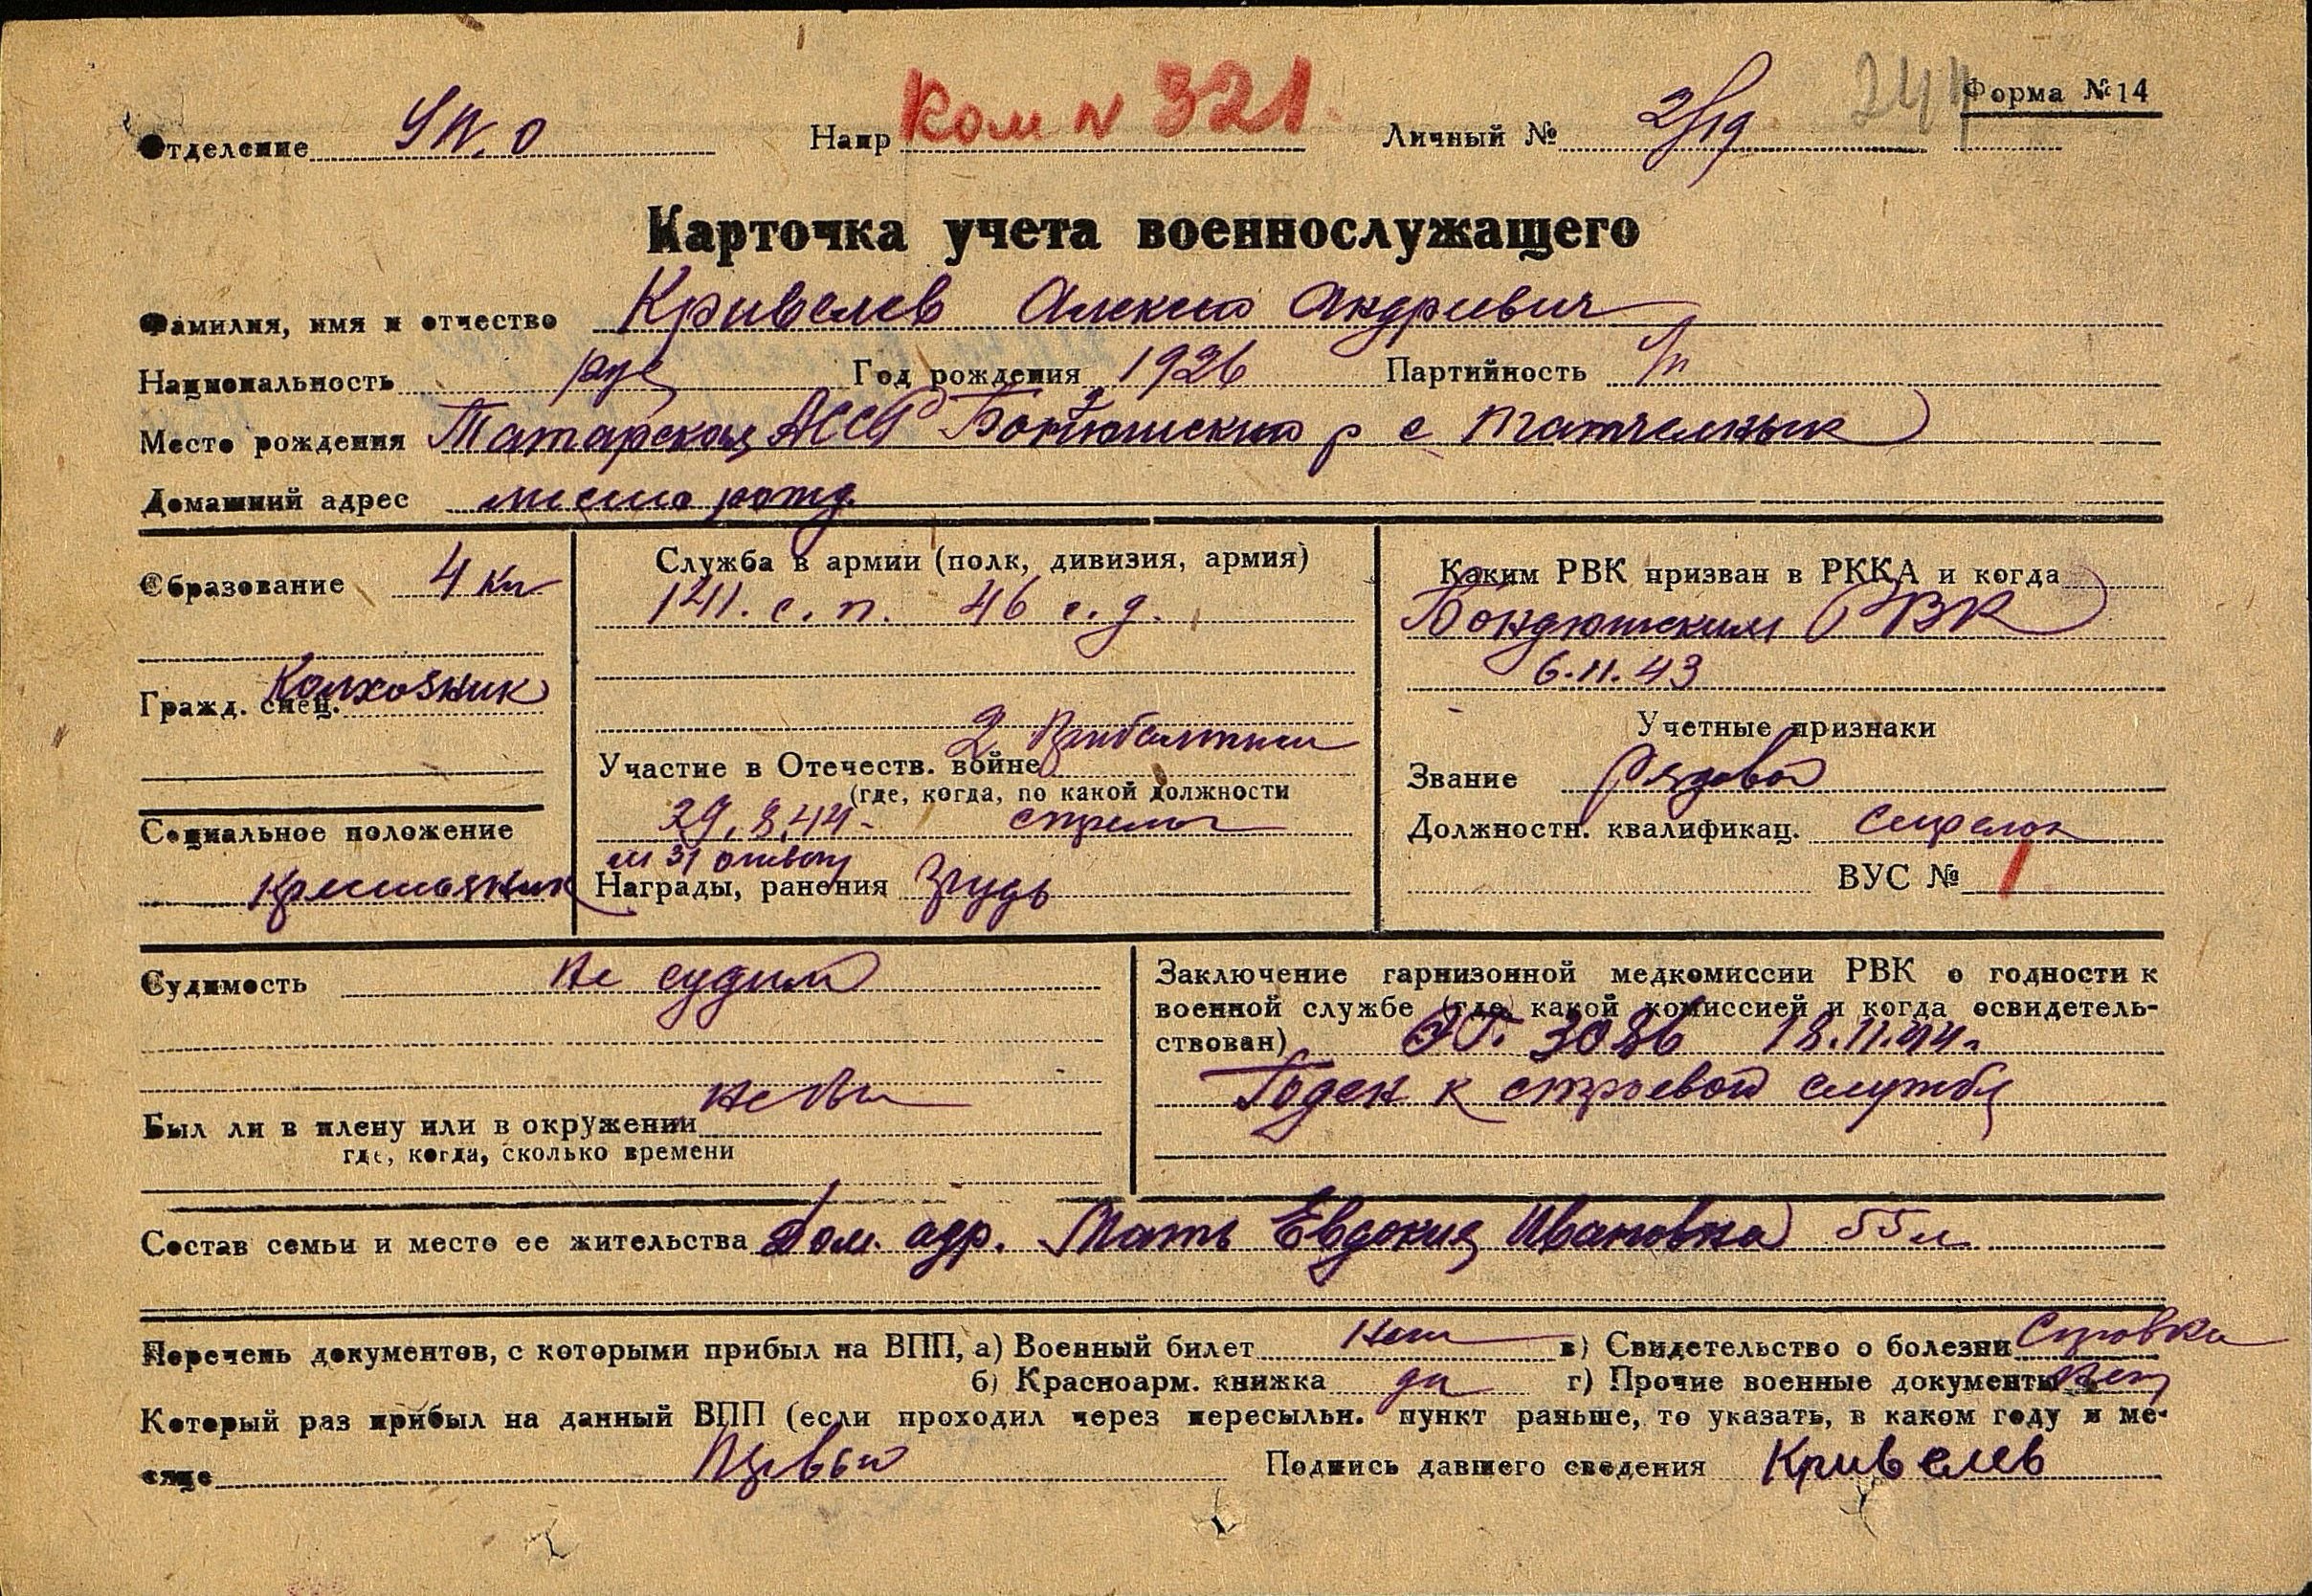 Форма №14
244
Отделение
Напр Ком N 321.
Личный № 2/19
Карточка учета военнослужащего
Фамилия, имя и отчество Кривелев Алексей Андреевич
Национальность рус Год рождения 1926 Партийность б/п
Место рождения Татарская АССР Бондюшский р с
Домашний адрес место рожд.
Образование 4 кл
Гражд. спец. Колхозник
Социальное положение
крестьянин
Служба в армии (полк, дивизия, армия)
141. с. п. 46 с. д.
2 Прибалтики
Участие в Отечеств. войне
(где, когда, по какой должности
29.8.44- стрелок
Награды, ранения грудь
Каким РВК призван в РККА и когда
Бондюшским РВК
6.11.43
Учетные признаки
Звание Рядовой
Должностн. квалификац. Стрелок
ВУС № 1
Судимость не судим
Был ли в плену или в окружении не был
где, когда, сколько времени
Заключение гарнизонной медкомиссии РВК о годности к
военной службе (где, какой комиссией и когда освидетель-
ствован) ЭГ. 3086 18.11.44.
Годен к строевой службе
Состав семьи и место ее жительства Дом. адр. Мать Евдокия Ивановна 55 л
Перечень документов, с которыми прибыл на ВПП, а) Военный билет нет в) Свидетельство о болезни Справка
б) Красноарм. книжка да г) Прочие военные документы нет
Который раз прибыл на данный ВПП (если проходил через пересыльн. пункт раньше, то указать, в каком году и ме-
сяце Первый Подпись давшего сведения Кривелев